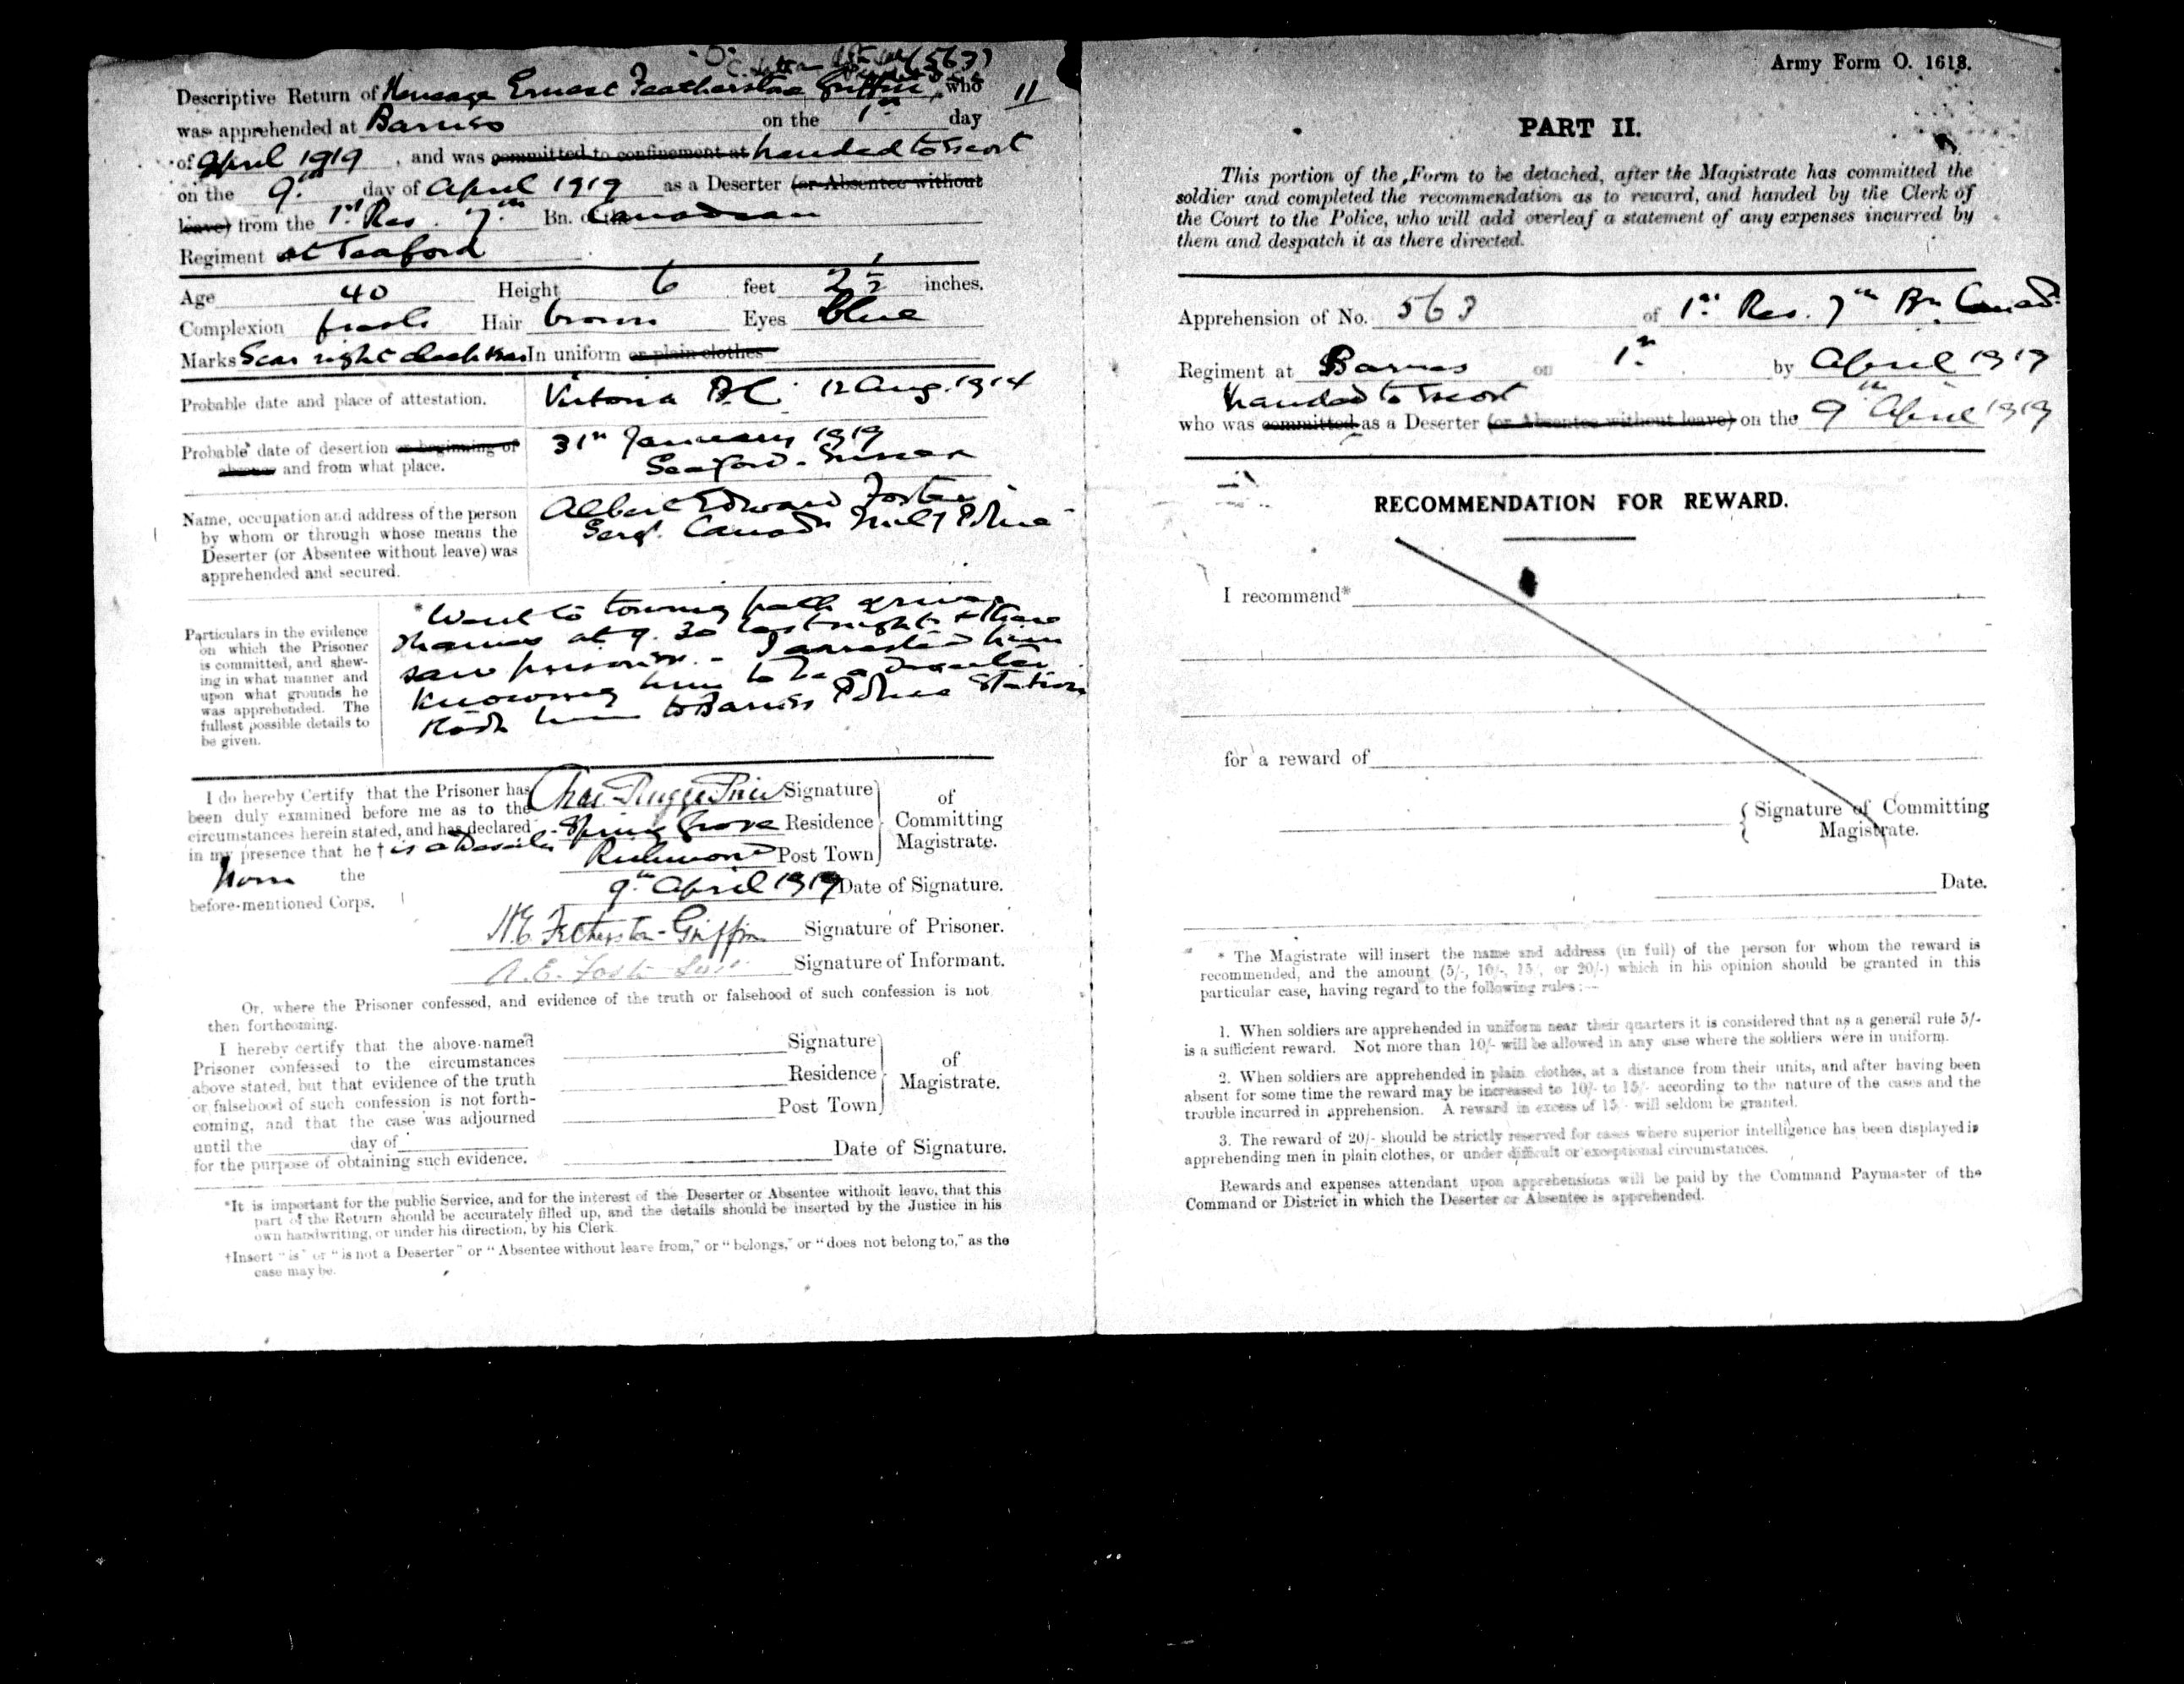 (563)
Descriptive Return of Heneage Ernest Featherstone Griffin, who 11
was apprehended at Barnes on the 1st day
of April 1919, and was committed to confinement at handed to Escort
on the 9th day of April 1919 as a Deserter (or Absentee without
leave) from the 1st Res. 7th Bn. of the Canadian
Regiment at Seaford
Age 40 Height 6 feet 2 1/2 inches.
Complexion fresh Hair brown Eyes blue
Marks Scar right In uniform or plain clothes
Probable date and place of attestation. Victoria B.C. 12 Aug. 1914
Probable date of desertion or beginning of 31st January 1919
absence and from what place. Seaford - Sussex
Name, occupation and address of the person Albert Edward Foster
by whom or through whose means the Sergt. Canadn Mily Police
Deserter (or Absentee without leave) was
apprehended and secured.
Particulars in the evidence
on which the Prisoner
is committed, and shew-
ing in what manner and
upon what grounds he
was apprehended. The
fullest possible details to
be given.
"Went to towing path
Thames at 9.30 last night & there
saw prisoner. - I arrested him
knowing him to be a Deserter
Took him to Barnes Police Station
I do hereby Certify that the Prisoner has
been duly examined before me as to the
circumstances herein stated, and has declared
in my presence that he † is a Deserter
from the
before-mentioned Corps.
Chas. Rugge Price Signature
Spring Grove Residence
Richmond Post Town
of
Committing
Magistrate.
9th April 1919 Date of Signature.
H.E. Fetherston-Griffin Signature of Prisoner.
A.E. Foster Sergt Signature of Informant.
Or, where the Prisoner confessed, and evidence of the truth or falsehood of such confession is not
then forthcoming.
I hereby certify that the above-named
Prisoner confessed to the circumstances
above stated, but that evidence of the truth
or falsehood of such confession is not forth-
coming, and that the case was adjourned
until the day of
for the purpose of obtaining such evidence.
Signature
Residence
Post Town
of
Magistrate.
Date of Signature.
*It is important for the public Service, and for the interest of the Deserter or Absentee without leave, that this
part of the Return should be accurately filled up, and the details should be inserted by the Justice in his
own handwriting, or under his direction, by his Clerk.
†Insert "is" or "is not a Deserter" or "Absentee without leave from," or "belongs," or "does not belong to," as the
case may be.
Army Form O. 1618.
PART II.
This portion of the Form to be detached, after the Magistrate has committed the
soldier and completed the recommendation as to reward, and handed by the Clerk of
the Court to the Police, who will add overleaf a statement of any expenses incurred by
them and despatch it as there directed.
Apprehension of No. 563 of 1st Res. 7th Bn. Canad.
Regiment at Barnes on 1st by April 1919
handed to Escort
who was committed as a Deserter (or Absentee without leave) on the 9th April 1919
RECOMMENDATION FOR REWARD.
I recommend*
for a reward of
Signature of Committing
Magistrate.
Date.
* The Magistrate will insert the name and address (in full) of the person for whom the reward is
recommended, and the amount (5/-, 10/-, 15/, or 20/-) which in his opinion should be granted in this
particular case, having regard to the following rules:—
1. When soldiers are apprehended in uniform near their quarters it is considered that as a general rule 5/-
is a sufficient reward. Not more than 10/- will be allowed in any case where the soldiers were in uniform.
2. When soldiers are apprehended in plain clothes, at a distance from their units, and after having been
absent for some time the reward may be increased to 10/- to 15/- according to the nature of the cases and the
trouble incurred in apprehension. A reward in excess of 15/- will seldom be granted.
3. The reward of 20/- should be strictly reserved for cases where superior intelligence has been displayed in
apprehending men in plain clothes, or under difficult or exceptional circumstances.
Rewards and expenses attendant upon apprehensions will be paid by the Command Paymaster of the
Command or District in which the Deserter or Absentee is apprehended.